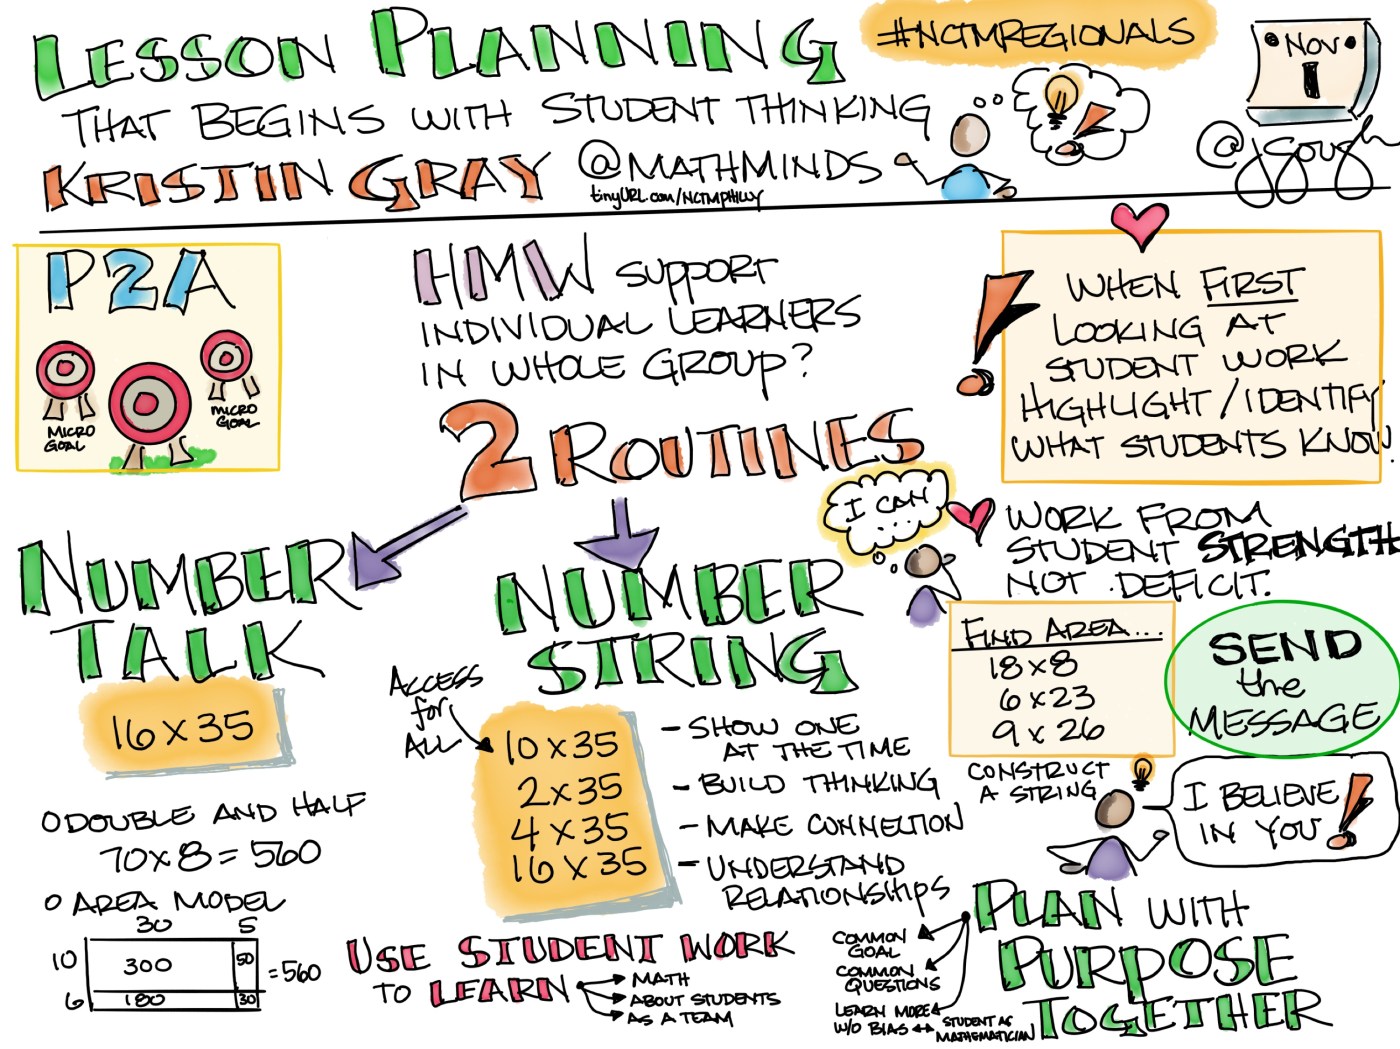 LESSON PLANNING
#NCTMREGIONALS
NOV
1
THAT BEGINS WITH STUDENT THINKING
KRISTIN GRAY @MATHMINDS
tinyURL.com/NCTMPHILLY
@jgough
P2A
MICRO GOAL
MICRO GOAL
HMW SUPPORT
INDIVIDUAL LEARNERS
IN WHOLE GROUP?
2 ROUTINES
WHEN FIRST
LOOKING AT
STUDENT WORK
HIGHLIGHT/IDENTIFY
WHAT STUDENTS KNOW.
I CAN
....
WORK FROM
STUDENT STRENGTH
NOT DEFICIT.
NUMBER
TALK
16 x 35
O DOUBLE AND HALF
70 x 8 = 560
O AREA MODEL
30 5
10 300 50
6 180 30
= 560
NUMBER
STRING
ACCESS
for
ALL
10 x 35
2 x 35
4 x 35
16 x 35
- SHOW ONE
AT THE TIME
- BUILD THINKING
- MAKE CONNECTION
- UNDERSTAND
RELATIONSHIPS
FIND AREA...
18 x 8
6 x 23
9 x 26
CONSTRUCT
A STRING
SEND
the
MESSAGE
I BELIEVE
IN YOU
USE STUDENT WORK
TO LEARN
MATH
ABOUT STUDENTS
AS A TEAM
PLAN WITH
PURPOSE
TOGETHER
COMMON
GOAL
COMMON
QUESTIONS
LEARN MORE
W/O BIAS ↔ STUDENT AS
MATHEMATICIAN